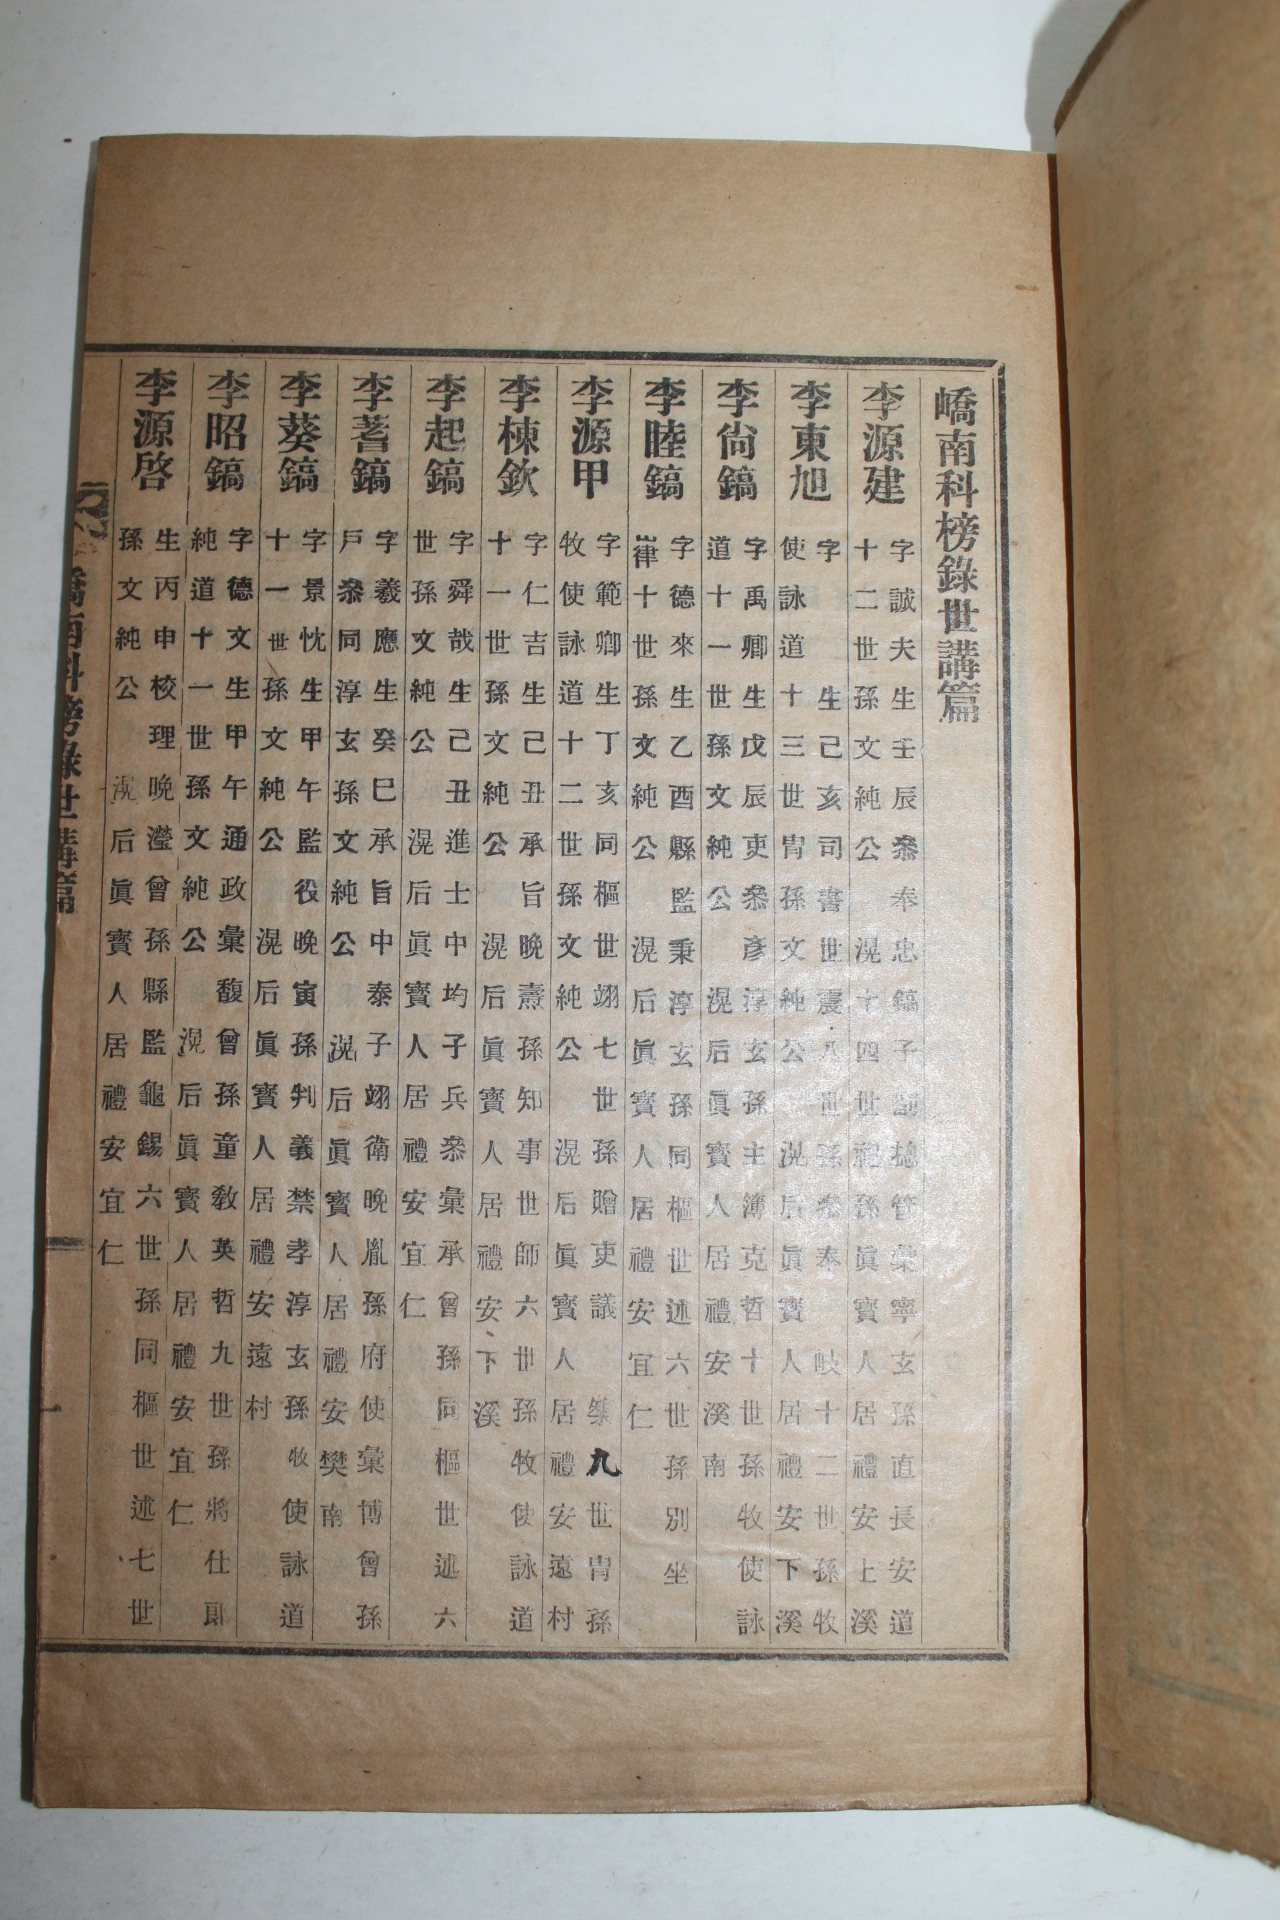 嶠南科榜錄世講篇
李源建
字誠夫生壬辰叅奉忠鎬子副摠管彙寧玄孫直長安道
十二世孫文純公滉十四世祀孫眞寶人居禮安上溪
李東旭
字 生己亥司書世震八世孫叅奉岐十二世孫牧
使詠道十三世胄孫文純公滉后眞寶人居禮安下溪
李尙鎬
字禹卿生戊辰吏叅彥淳玄孫主簿克哲十世孫牧使詠
道十一世孫文純公滉后眞寶人居禮安溪南
李睦鎬
字德來生乙酉縣監秉淳玄孫同樞世述六世孫別坐
嵂十世孫文純公滉后眞寶人居禮安宜仁
李源甲
字範卿生丁亥同樞世翊七世孫贈吏議 九世胄孫
牧使詠道十二世孫文純公滉后眞寶人居禮安遠村
李棟欽
字仁吉生己丑承旨晚燾孫知事世師六世孫牧使詠道
十一世孫文純公滉后眞寶人居禮安下溪
李起鎬
字舜哉生己丑進士中均子兵叅彙承曾孫同樞世述六
世孫文純公滉后眞寶人居禮安宜仁
李蓍鎬
字羲應生癸巳承旨中泰子翊衛晚胤孫府使彙博曾孫
戶叅同淳玄孫文純公滉后眞寶人居禮安樊南
李葵鎬
字景忱生甲午監役晚寅孫判義禁孝淳玄孫牧使詠道
十一世孫文純公滉后眞寶人居禮安遠村
李昭鎬
字德文生甲午通政彙馥曾孫童敎英哲九世孫將仕郞
純道十一世孫文純公滉后眞寶人居禮安宜仁
李源啓
生丙申校理晚瀅曾孫縣監龜錫六世孫同樞世述七世
孫文純公滉后眞寶人居禮安宜仁
嶠南科榜錄世講篇